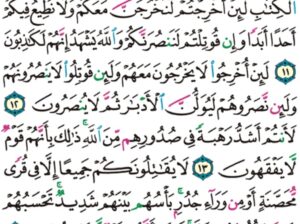 ٱلْكِتَٰبِ لَئِنْ أُخْرِجْتُمْ لَنَخْرُجَنَّ مَعَكُمْ وَلَا نُطِيعُ فِيكُمْ
أَحَدًا أَبَدًا وَإِن قُوتِلْتُمْ لَنَنصُرَنَّكُمْ وَٱللَّهُ يَشْهَدُ إِنَّهُمْ لَكَٰذِبُونَ
١١ لَئِنْ أُخْرِجُوا۟ لَا يَخْرُجُونَ مَعَهُمْ وَلَئِن قُوتِلُوا۟ لَا يَنصُرُونَهُمْ
وَلَئِن نَّصَرُوهُمْ لَيُوَلُّنَّ ٱلْأَدْبَٰرَ ثُمَّ لَا يُنصَرُونَ ١٢
لَأَنتُمْ أَشَدُّ رَهْبَةً فِى صُدُورِهِم مِّنَ ٱللَّهِ ذَٰلِكَ بِأَنَّهُمْ قَوْمٌ
لَّا يَفْقَهُونَ ١٣ لَا يُقَٰتِلُونَكُمْ جَمِيعًا إِلَّا فِى قُرًى
مُّحَصَّنَةٍ أَوْ مِن وَرَآءِ جُدُرٍۭ بَأْسُهُم بَيْنَهُمْ شَدِيدٌ تَحْسَبُهُمْ